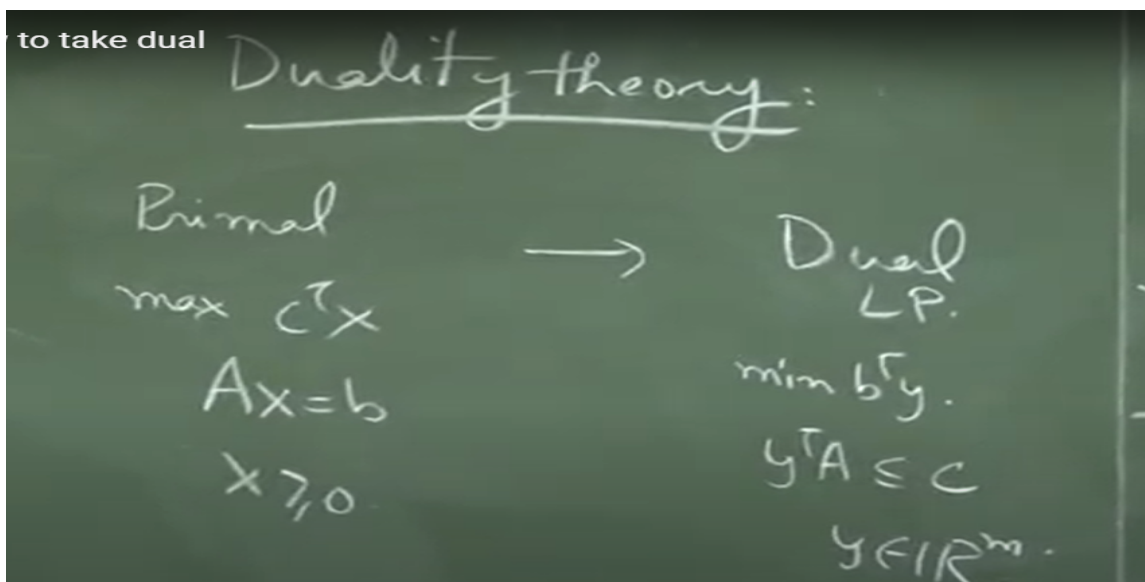 to take dual
Duality theory:
Primal
max cᵀx
Ax=b
x≥0
→
Dual
LP.
min bᵀy.
yᵀA ≤ c
y∈ℝᵐ.